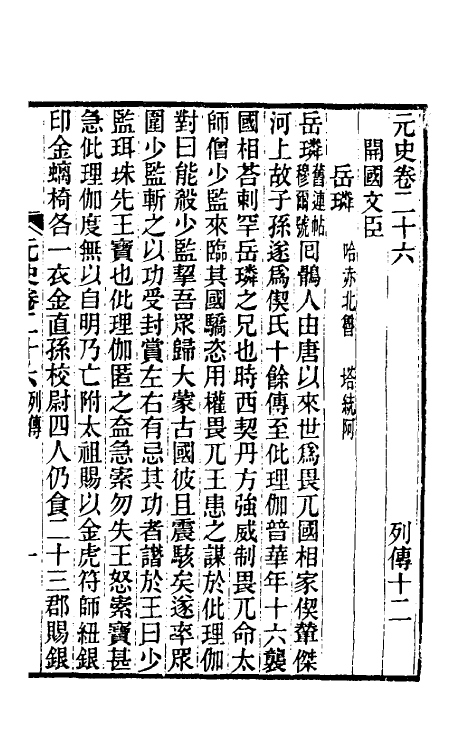 元史卷二十六　列傳十二
開國文臣
岳璘　哈赤北魯　塔統阿
岳璘舊連帖穆爾號回鶻人由唐以來世爲畏兀國相家偰輦傑
河上故子孫遂爲偰氏十餘傳至仳理伽普華年十六襲
國相荅剌罕岳璘之兄也時西契丹方強威制畏兀命太
師僧少監來臨其國驕恣用權畏兀王患之謀於仳理伽
對曰能殺少監挈吾眾歸大蒙古國彼且震駭矣遂率眾
圍少監斬之以功受封賞左右有忌其功者譖於王曰少
監珥珠先王寶也仳理伽匿之盍急索勿失王怒索寶甚
急仳理伽度無以自明乃亡附太祖賜以金虎符師紐銀
印金螭椅各一衣金直孫校尉四人仍食二十三郡賜銀
元史卷二十六 列傳　一